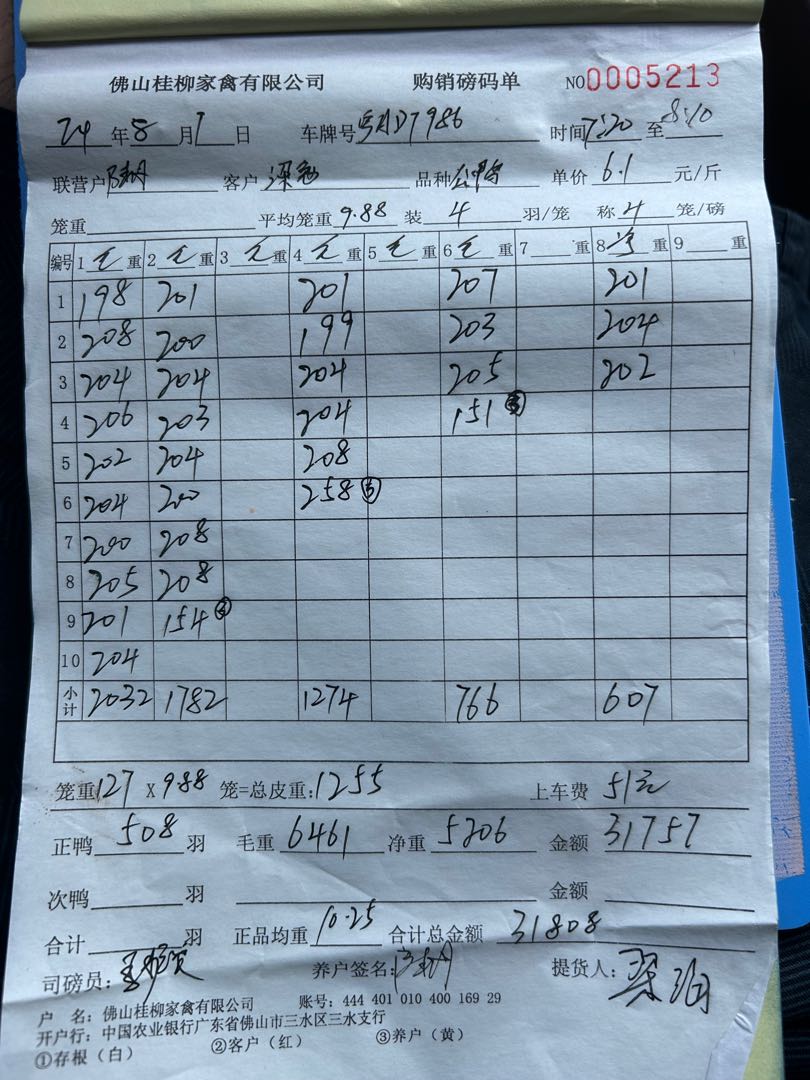 佛山桂柳家禽有限公司 购销磅码单 NO0005213
24年8月7日 车牌号 D7986 时间7:20至8:10
联营户 客户 品种 单价6.1元/斤
笼重 平均笼重9.88 装4羽/笼 称4笼/磅
编号 1毛重 2毛重 3毛重 4毛重 5毛重 6毛重 7 重 8 重 9 重
1 198 201 201 207 201
2 208 200 199 203 204
3 204 204 204 205 202
4 206 203 204 151③
5 202 204 208
6 204 200 258⑤
7 200 208
8 205 208
9 201 154
10 204
小计 2032 1782 1274 766 607
笼重127 X 988 笼=总皮重:1255 上车费 51元
正鸭508羽 毛重6461 净重5206 金额31757
次鸭 羽 金额
合计 羽 正品均重10.25 合计总金额31808
司磅员: 养户签名: 提货人:
户 名:佛山桂柳家禽有限公司 账号:444 401 010 400 169 29
开户行:中国农业银行广东省佛山市三水区三水支行
①存根(白) ②客户(红) ③养户(黄)